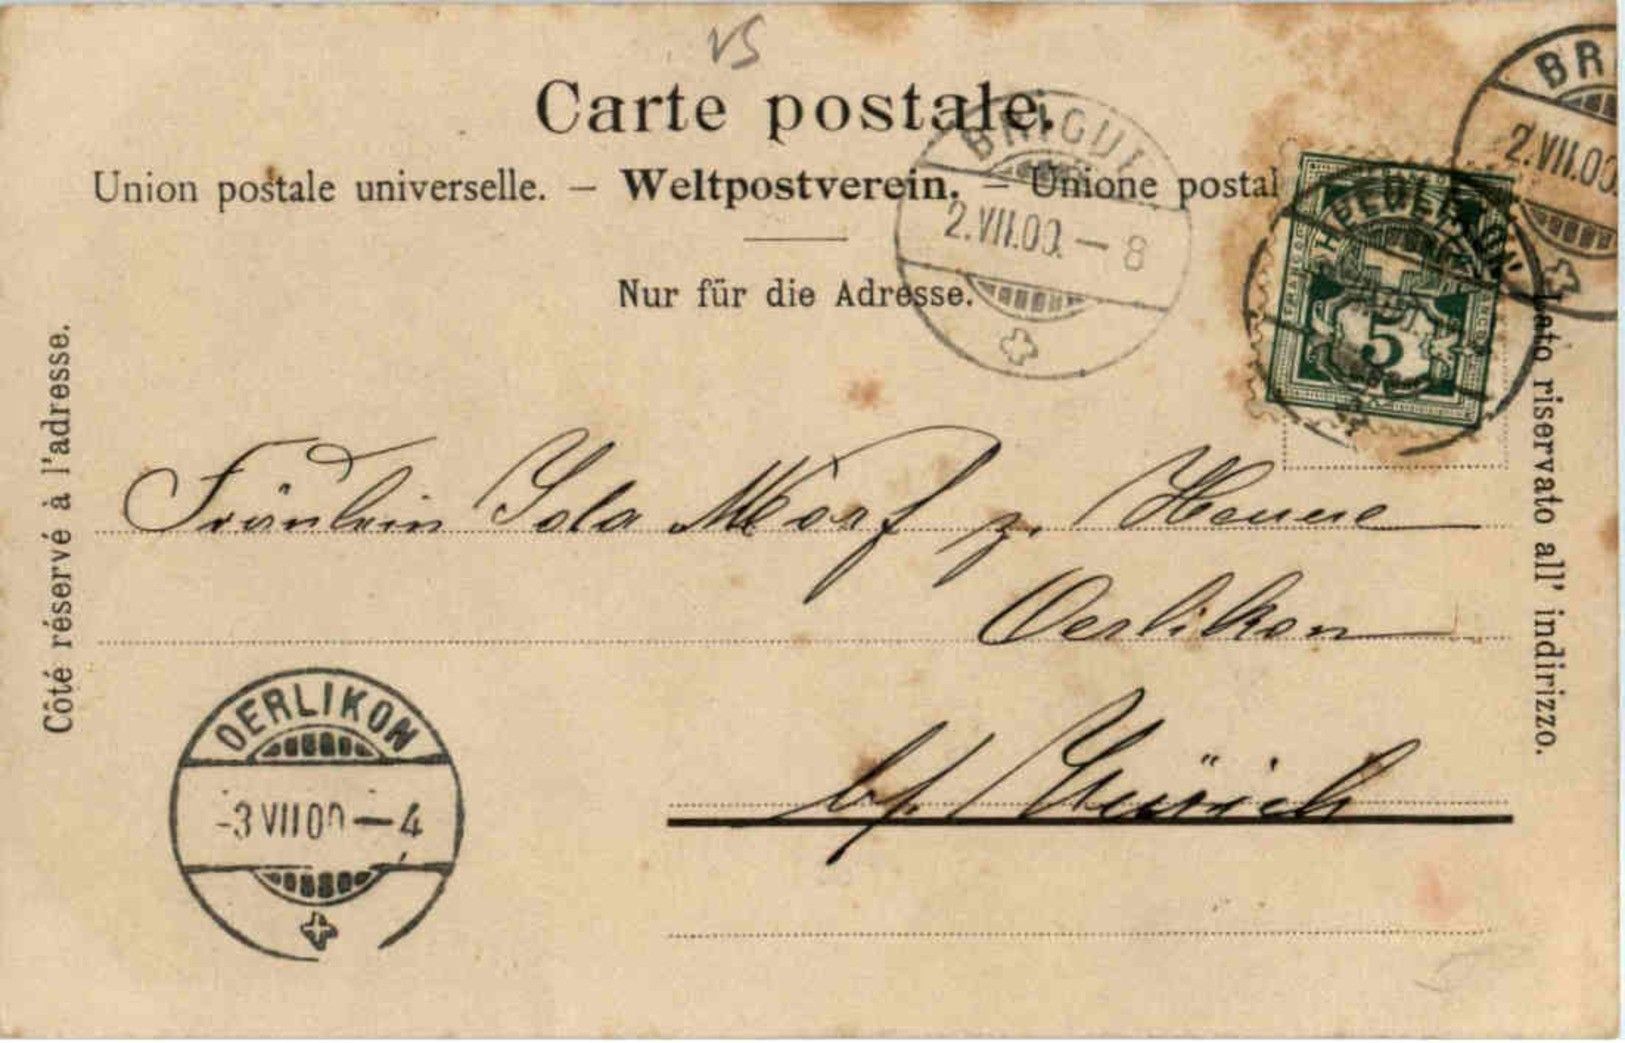 VS
Carte postale.
Union postale universelle. — Weltpostverein. — Unione postal
Nur für die Adresse.
Côté réservé à l'adresse.
Lato riservato all' indirizzo.
BRIGUE
2.VII.00. — 8
BRI
2.VII.00.
5
Fräulein Ida Morf z.
Oerlikon
b/ Zürich
OERLIKON
-3 VII 00 — 4